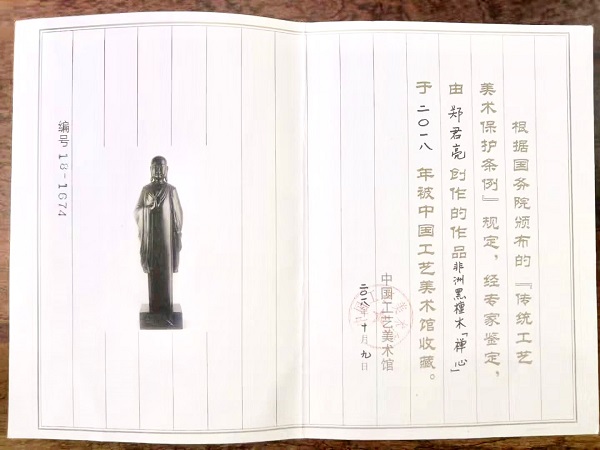 根据国务院颁布的『传统工艺
美术保护条例』规定，经专家鉴定，
由郑君亮创作的作品非洲黑檀木「禅心」
于二〇一八年被中国工艺美术馆收藏。
中国工艺美术馆
二〇一八年十月九日
编号 18-1674